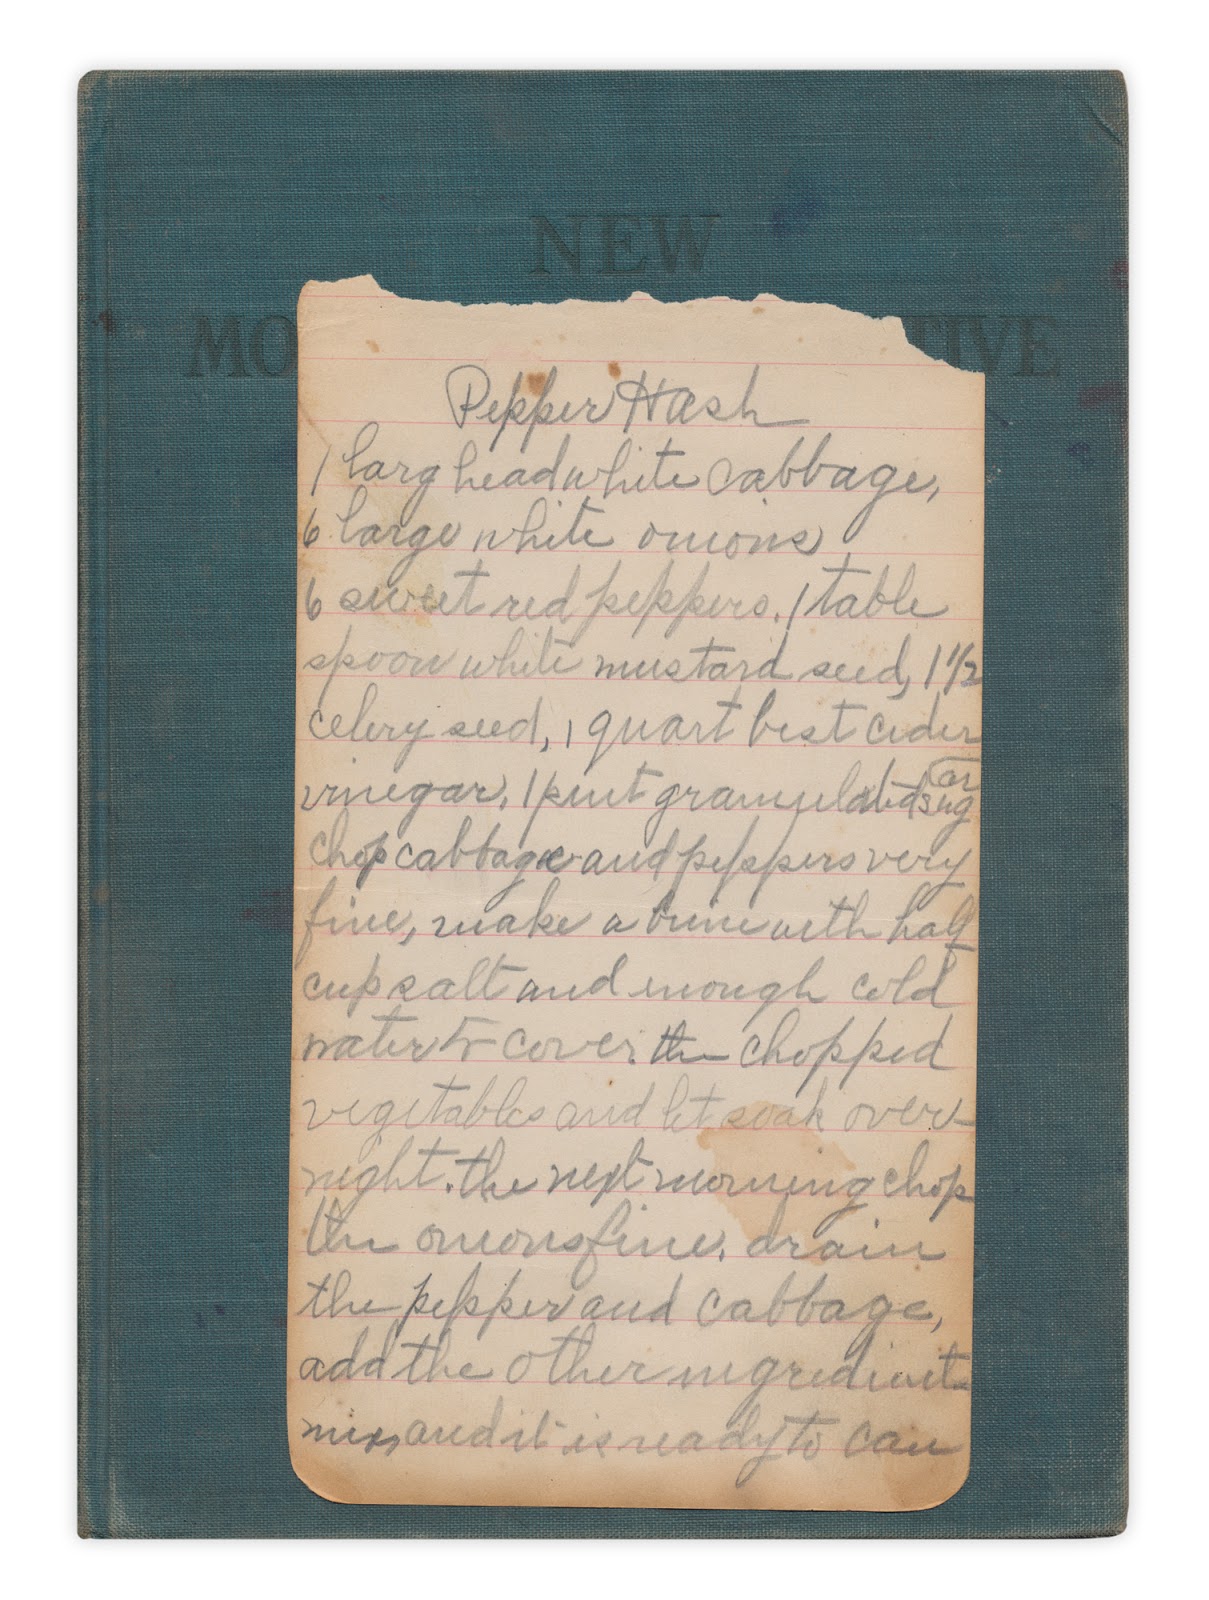 NEW
MO TIVE
Pepper Hash
1 larg head white cabbage,
6 large white onions
6 sweet red peppers. 1 table
spoon white mustard seed, 1 1/2
celery seed, 1 quart best cider
vinegar, 1 pint granulated sugar
chop cabbage and peppers very
fine, make a brine with half
cup salt and enough cold
water to cover the chopped
vegetables and let soak over-
night. the next morning chop
the onions fine. drain
the pepper and cabbage,
add the other ingredient
mix, and it is ready to can